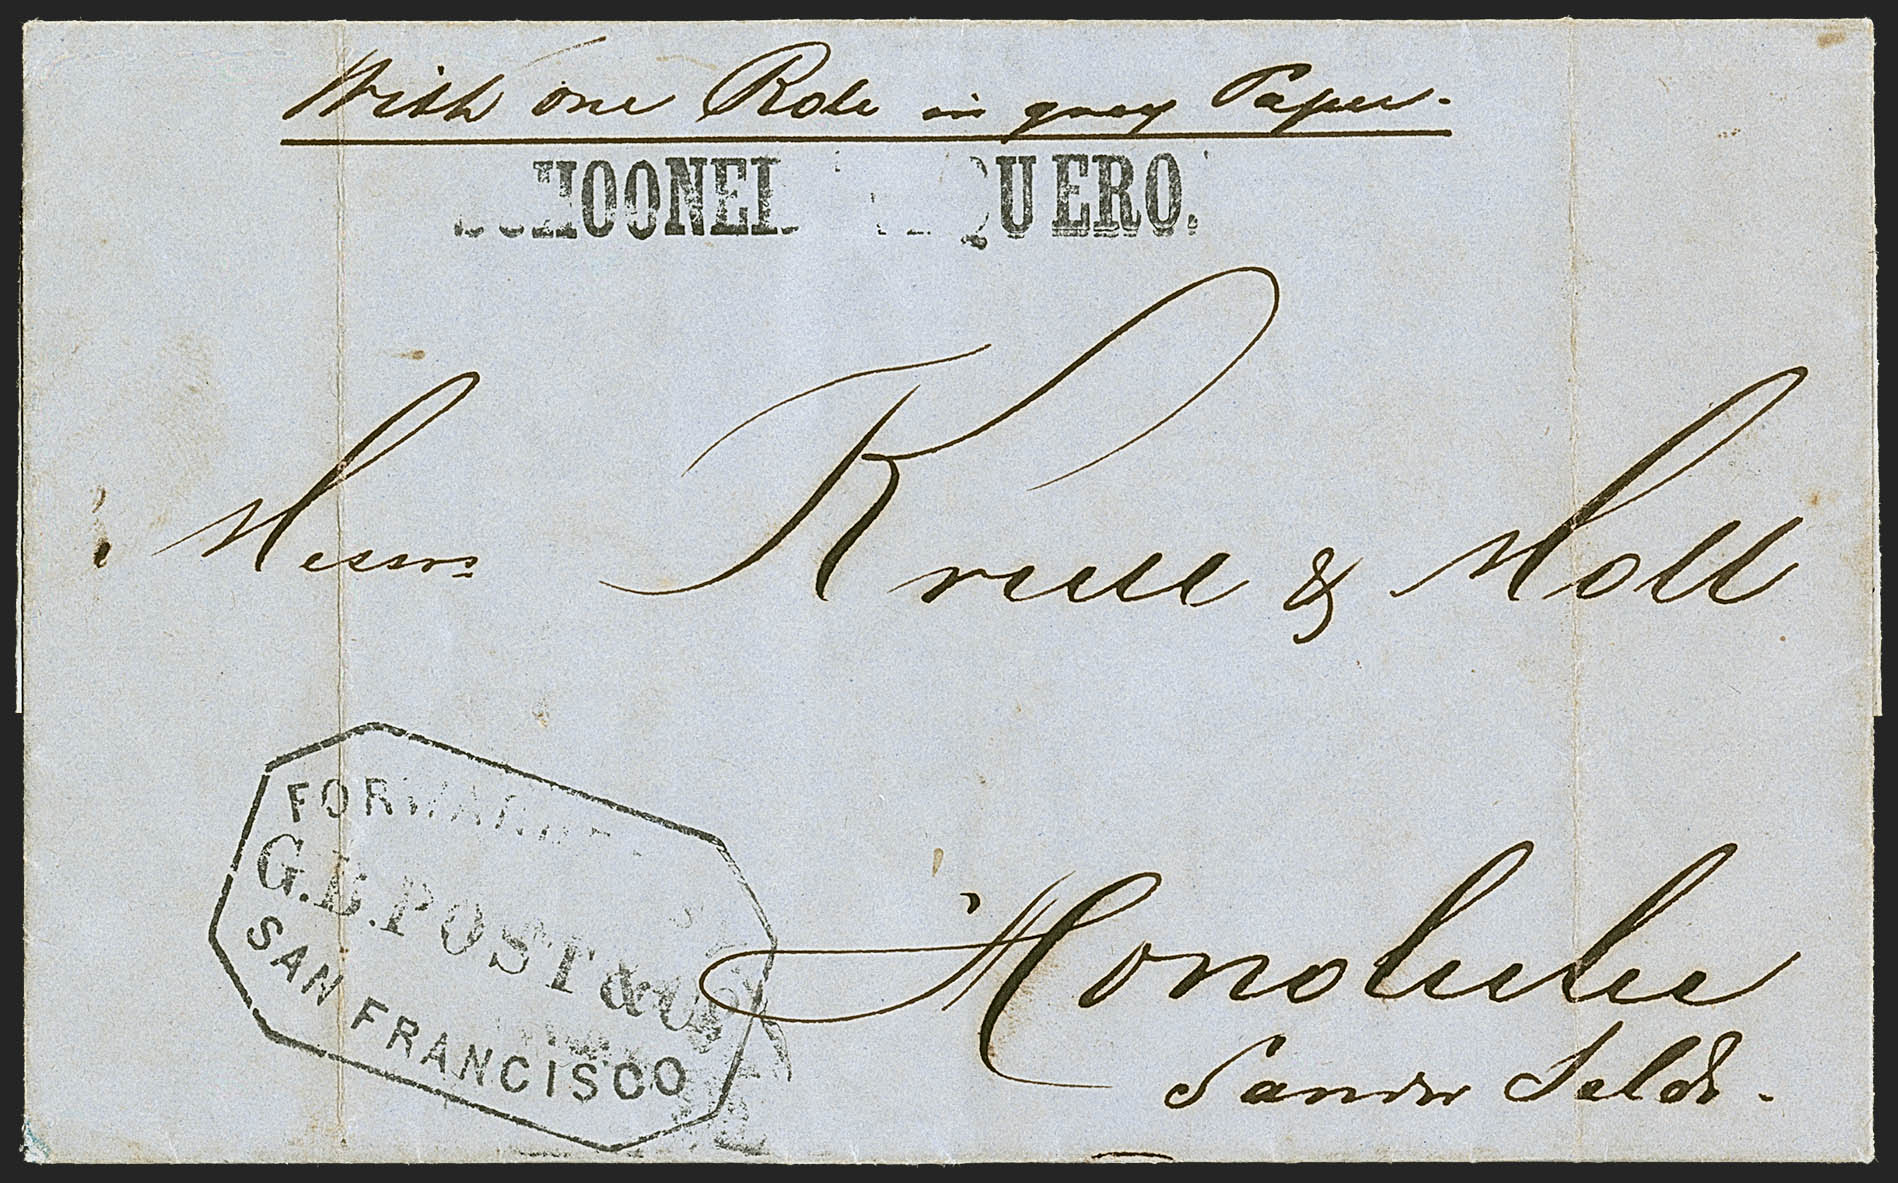 With one Role in grey Paper.
SCHOONER VAQUERO.
Messrs Krull & Moll
Honolulu
Sandw Islds.
FORWARDED
G.B. POST & CO
SAN FRANCISCO